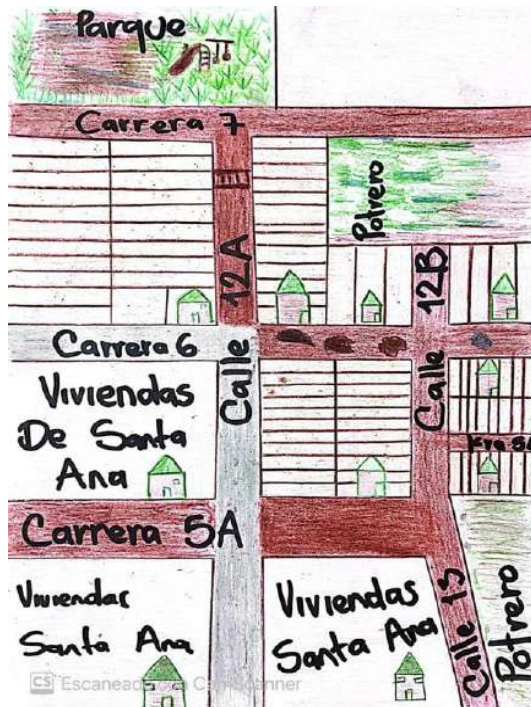 Parque
Carrera 7
Potrero
12A
12B
Carrera 6
Calle
Calle
Viviendas
De Santa
Ana
Kra 5A
Carrera 5A
Viviendas
Santa Ana
Viviendas
Santa Ana
Calle 13
Potrero
CS Escaneado con CamScanner